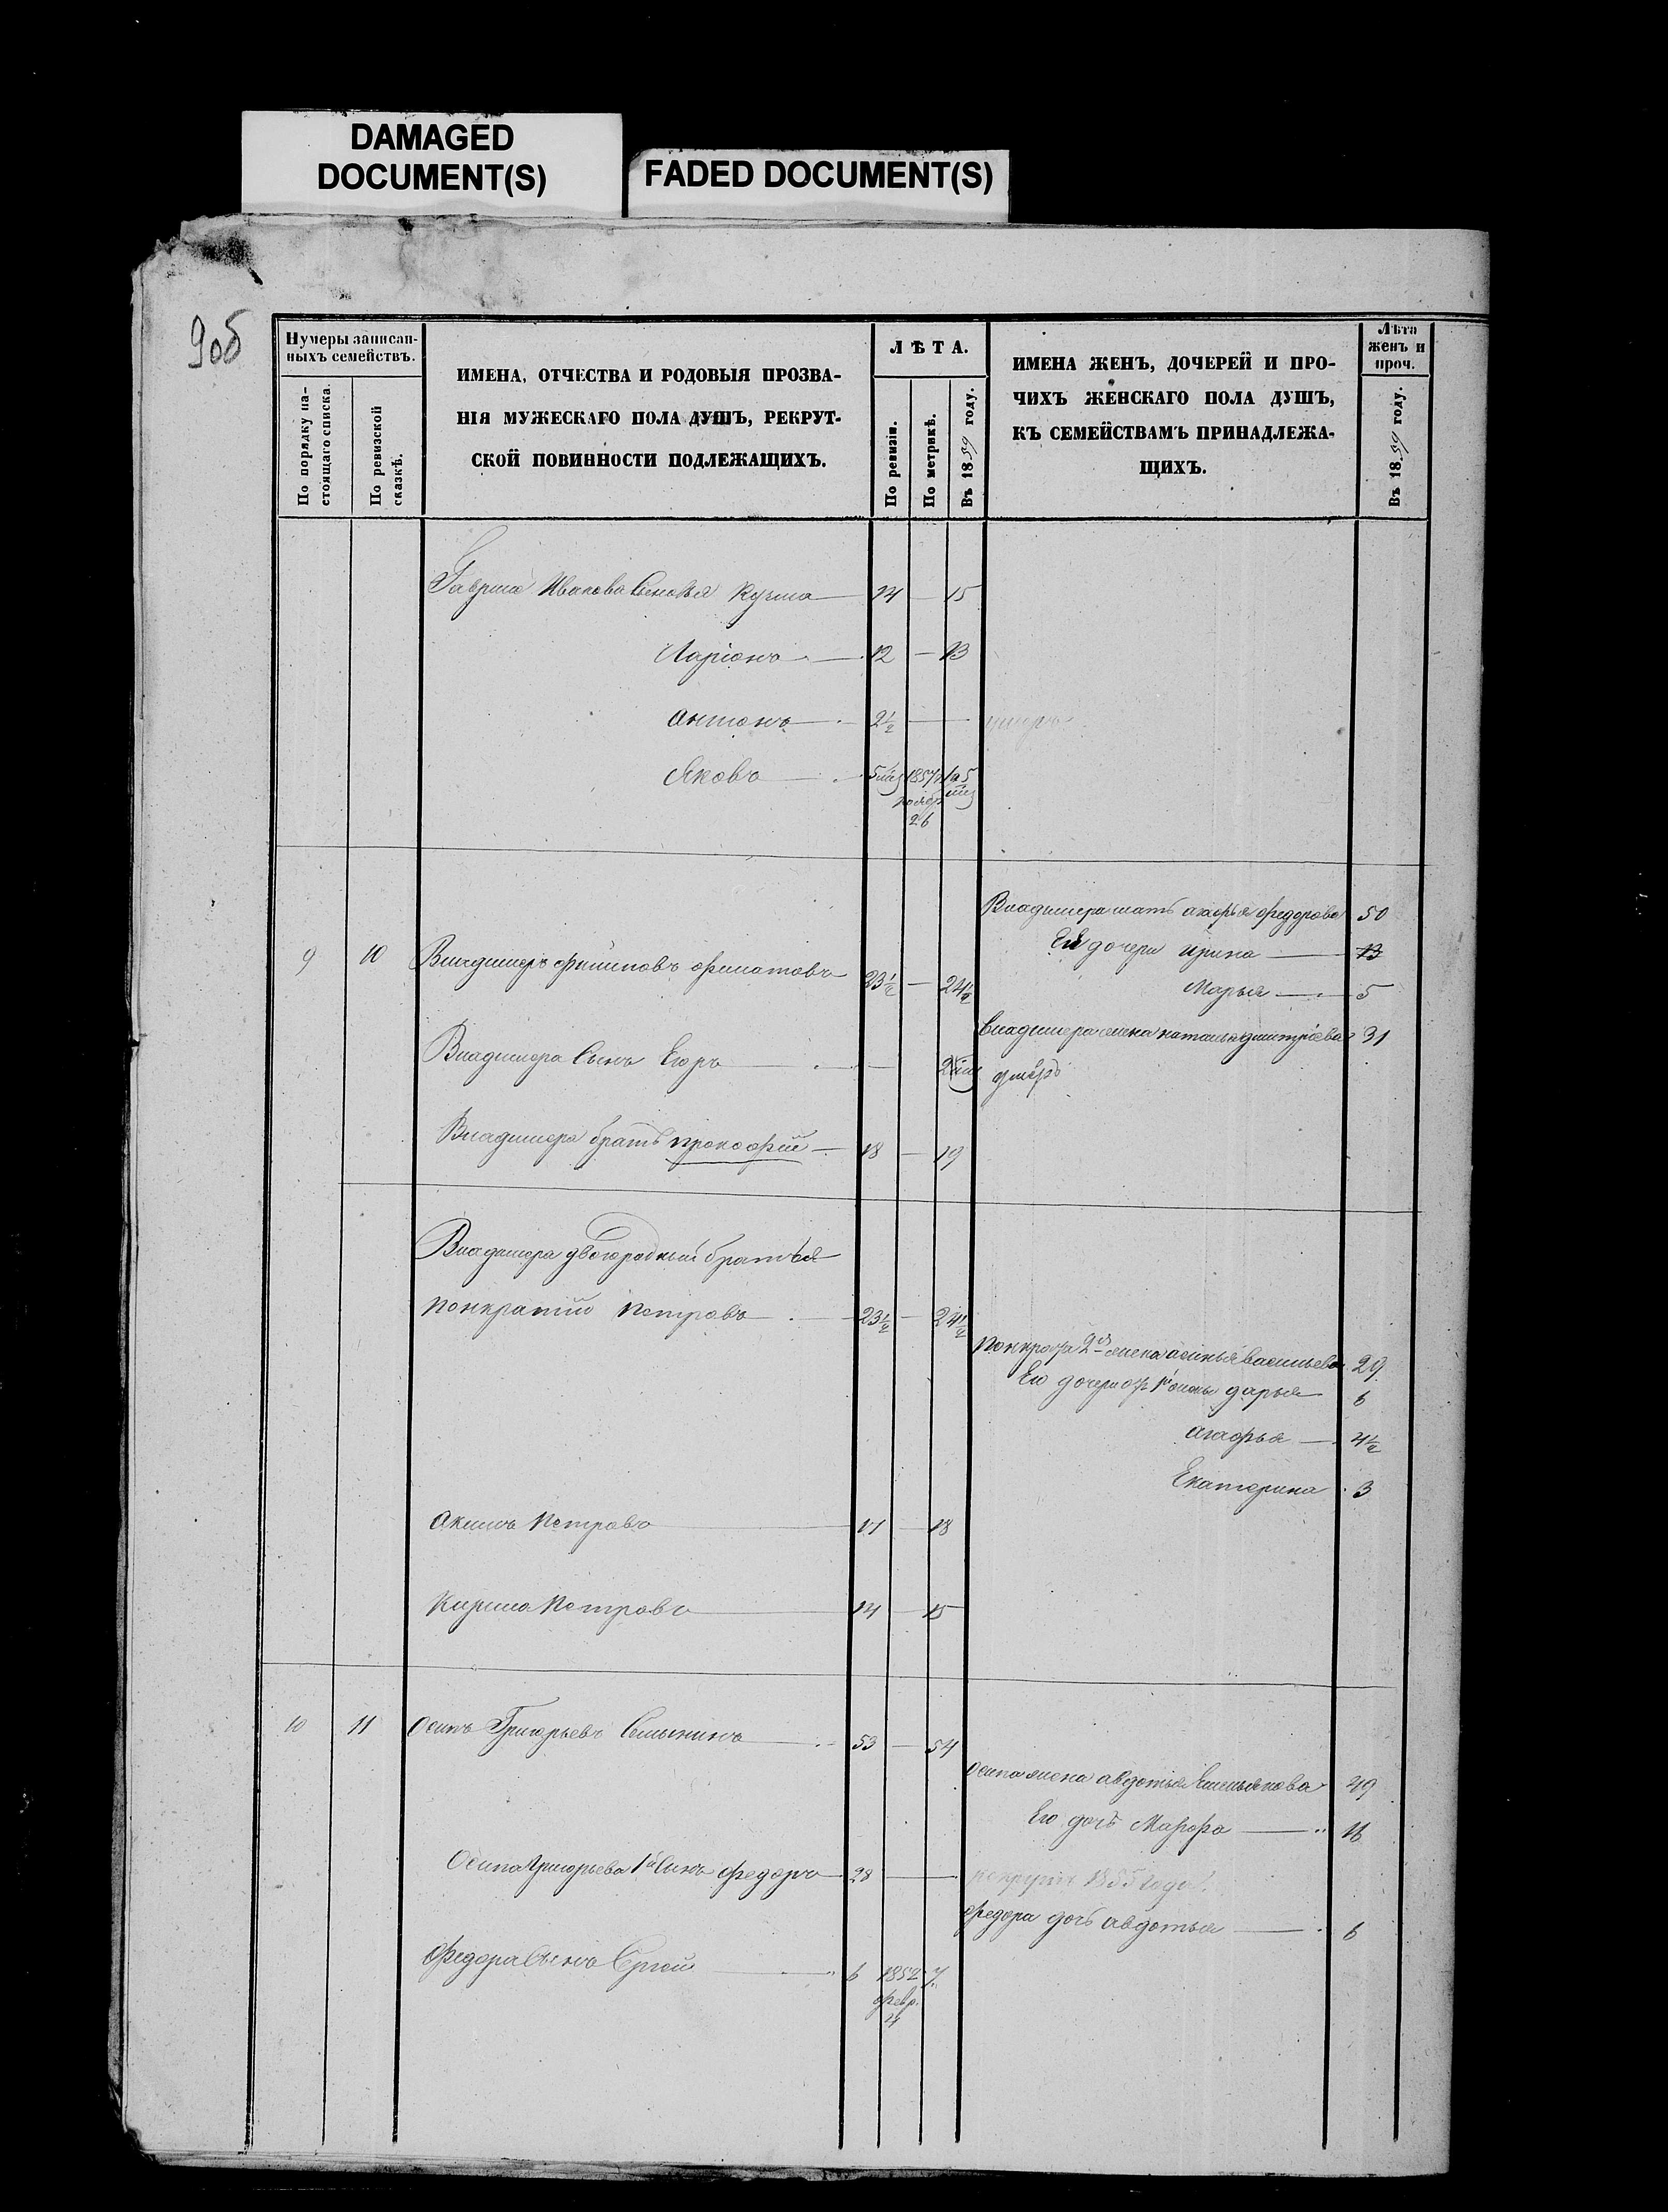 DAMAGED
DOCUMENT(S)
FADED DOCUMENT(S)
9об
Нумеры записан-
ныхъ семействъ.
По порядку на-
стоящаго списка.
По ревизской
сказкѣ.
ИМЕНА, ОТЧЕСТВА И РОДОВЫЯ ПРОЗВА-
НІЯ МУЖЕСКАГО ПОЛА ДУШЪ, РЕКРУТ-
СКОЙ ПОВИННОСТИ ПОДЛЕЖАЩИХЪ.
ЛѢТА.
По ревизіи.
По метрикѣ.
Въ 1859 году.
ИМЕНА ЖЕНЪ, ДОЧЕРЕЙ И ПРО-
ЧИХЪ ЖЕНСКАГО ПОЛА ДУШЪ,
КЪ СЕМЕЙСТВАМЪ ПРИНАДЛЕЖА-
ЩИХЪ.
Лѣта
женъ и
проч.
Въ 1859 году.
Гаврила Иванова Сыновья Кузма — 14 — 15
Ларіонъ — 12 — 13
Антонъ — 2½ — умеръ
Яковъ — 5 мѣс 1857 1 5
ноябр мѣс
26
Владимера мать агафья федорова 50
Ея дочери Ирина — 13
9 10 Владимеръ филиповъ филатовъ 23½ — 24½
Марья — 5
Владимера жена наталья дмитріева 31
Владимера Сынъ Егоръ — умеръ
Владимера братъ прокофій — 18 — 19
Владимера двоюродныи братья
понкратій Петровъ — 23½ — 24½
понкрата 2я жена аксинья васильева 29
Его дочери от 1й жены дарья 6
агафья — 4½
Екатерина 3
акимъ Петровъ — 17 — 18
Кирила Петровъ — 14 — 15
10 11 Осипъ Григорьевъ — 53 — 54
осипа жена авдотья Емельянова 49
Его дочь Марфа — 16
Осипа Григорьева 1й Сынъ федоръ 28 — рекрутъ 1855 года
федора дочь авдотья — 6
федора Сынъ Сергей — 6 1852 7
февр.